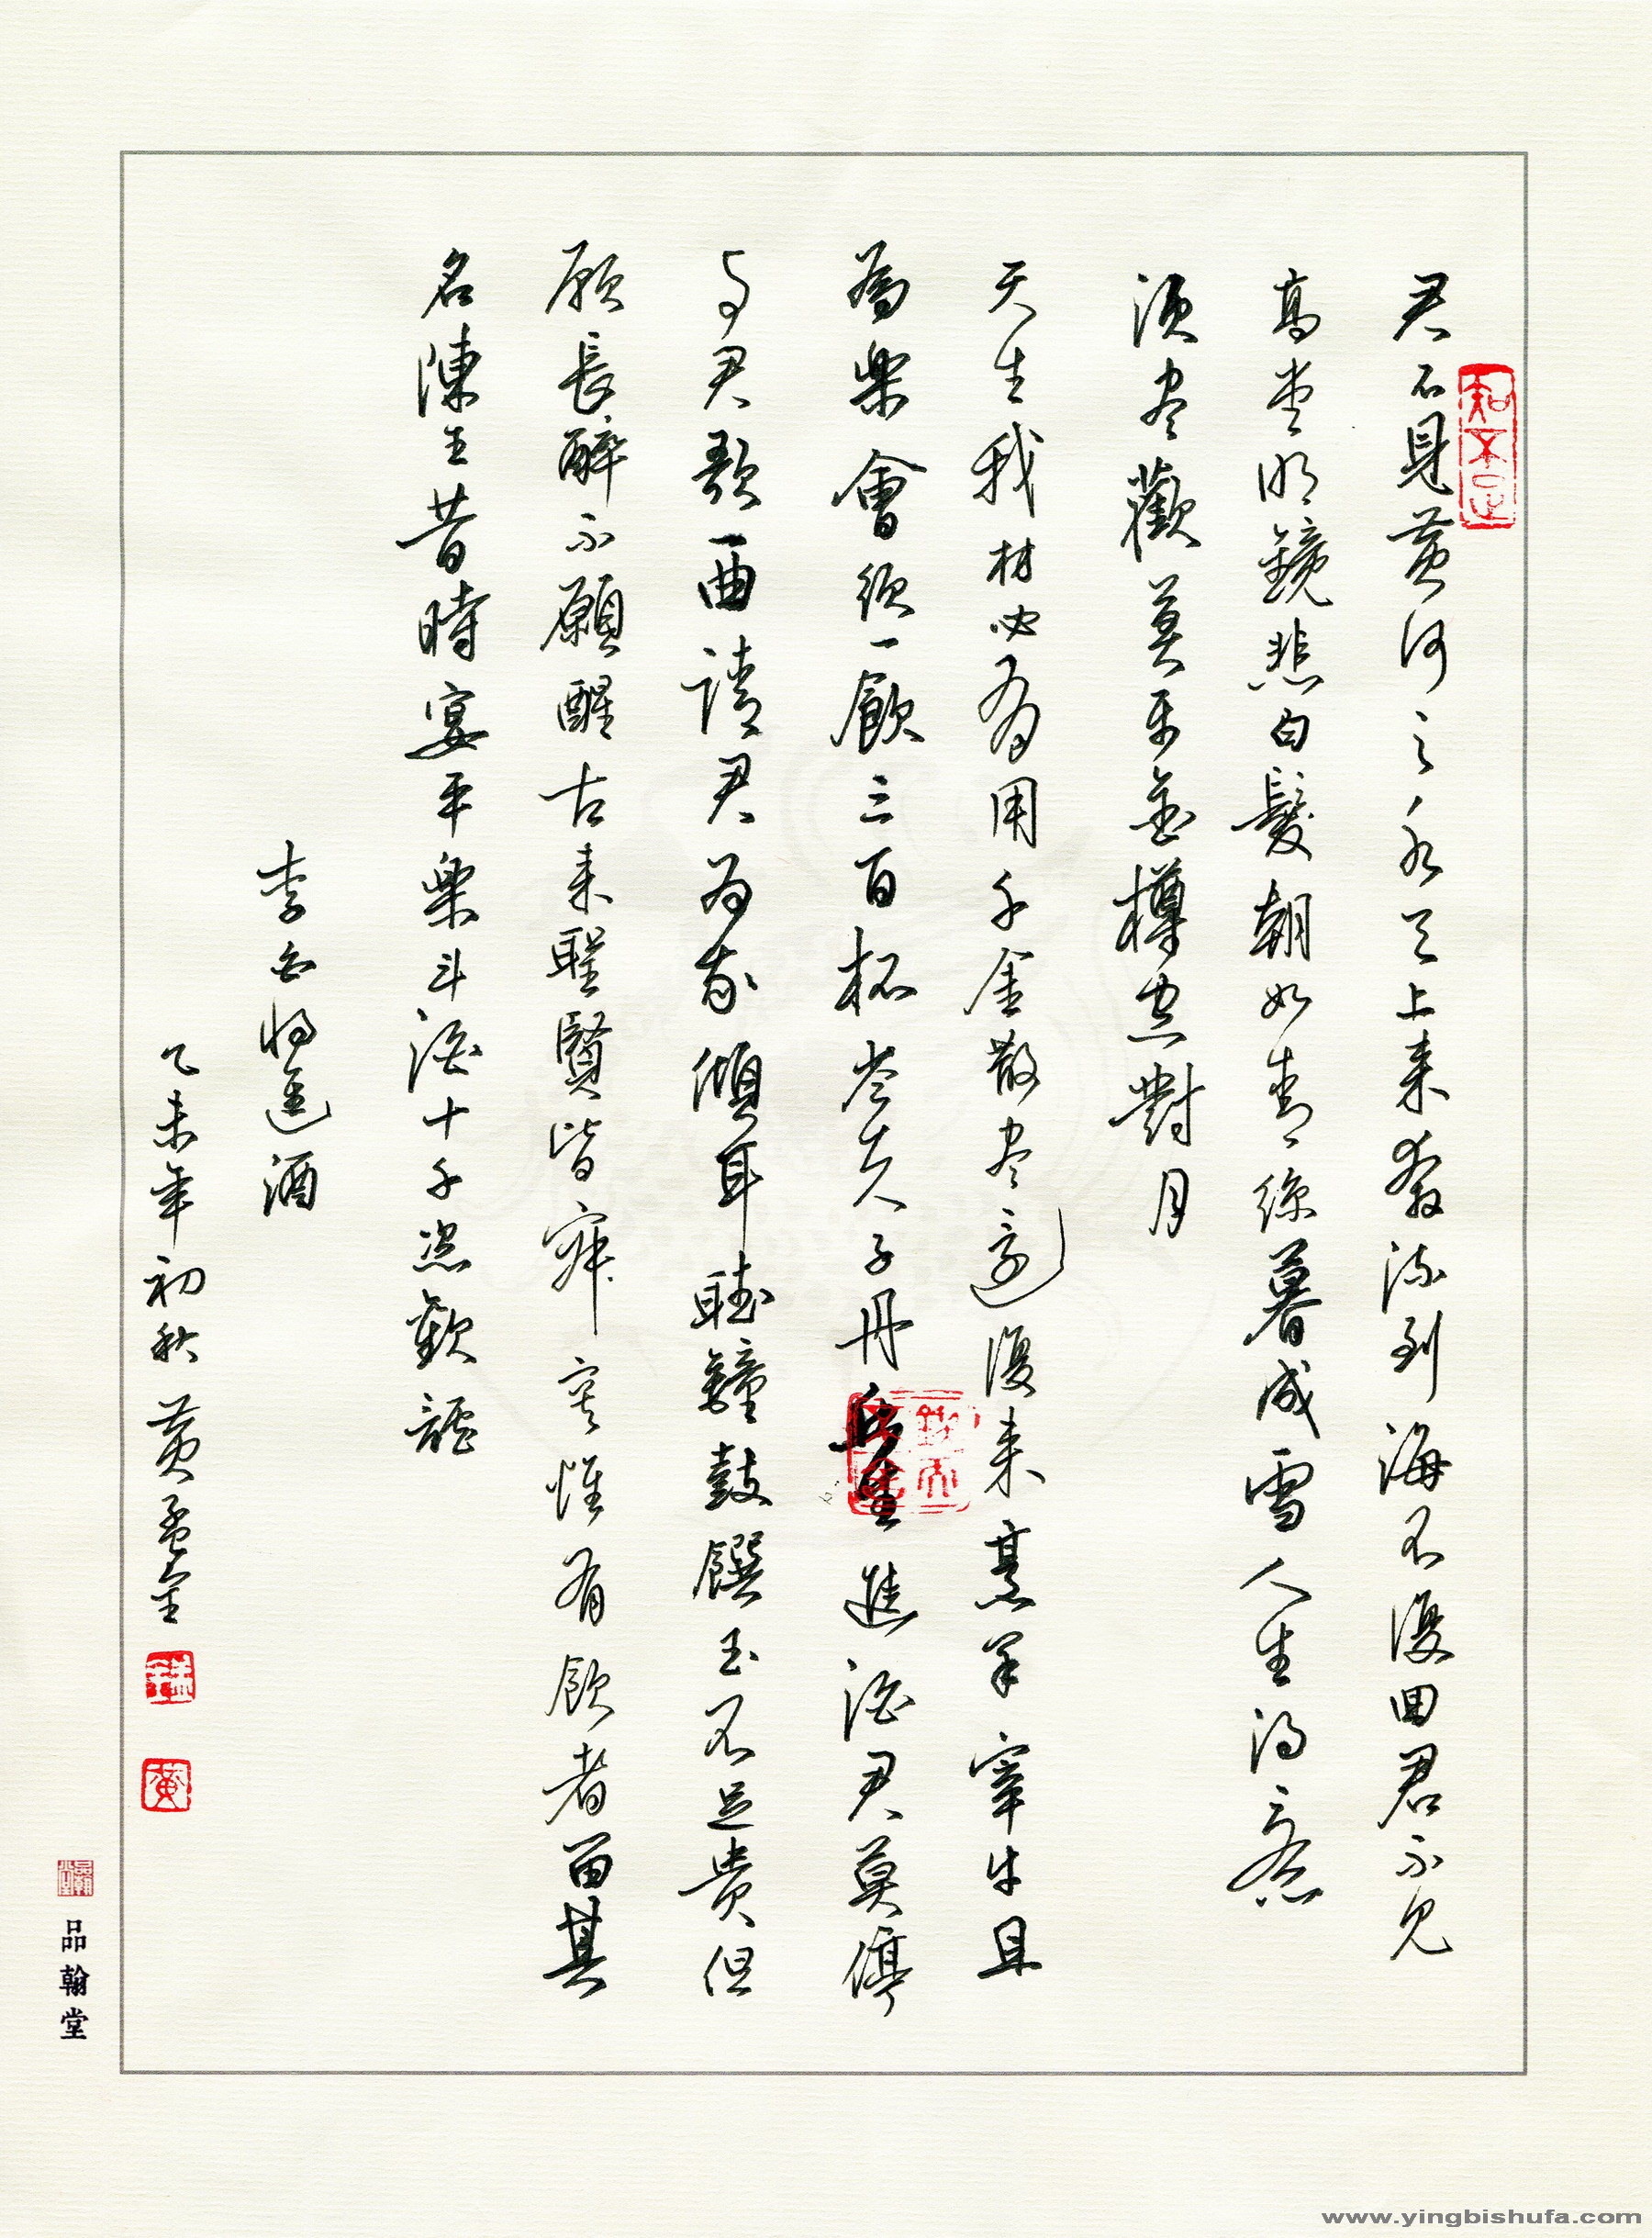 知不足
君不見黄河之水天上来奔流到海不復回君不見
高堂明鏡悲白髮朝如青絲暮成雪人生得意
須尽歡莫使金樽空對月
天生我材必有用千金散尽還復来烹羊宰牛且
為樂會須一飲三百杯岑夫子丹丘生進酒君莫停
与君歌一曲請君为我傾耳聴鐘鼓饌玉不足貴但
願長醉不願醒古来聖賢皆寂寞惟有飲者留其
名陳王昔時宴平樂斗酒十千恣歡謔
李白将進酒
乙未年初秋黄孟金
黄
品翰堂
品翰堂
www.yingbishufa.com